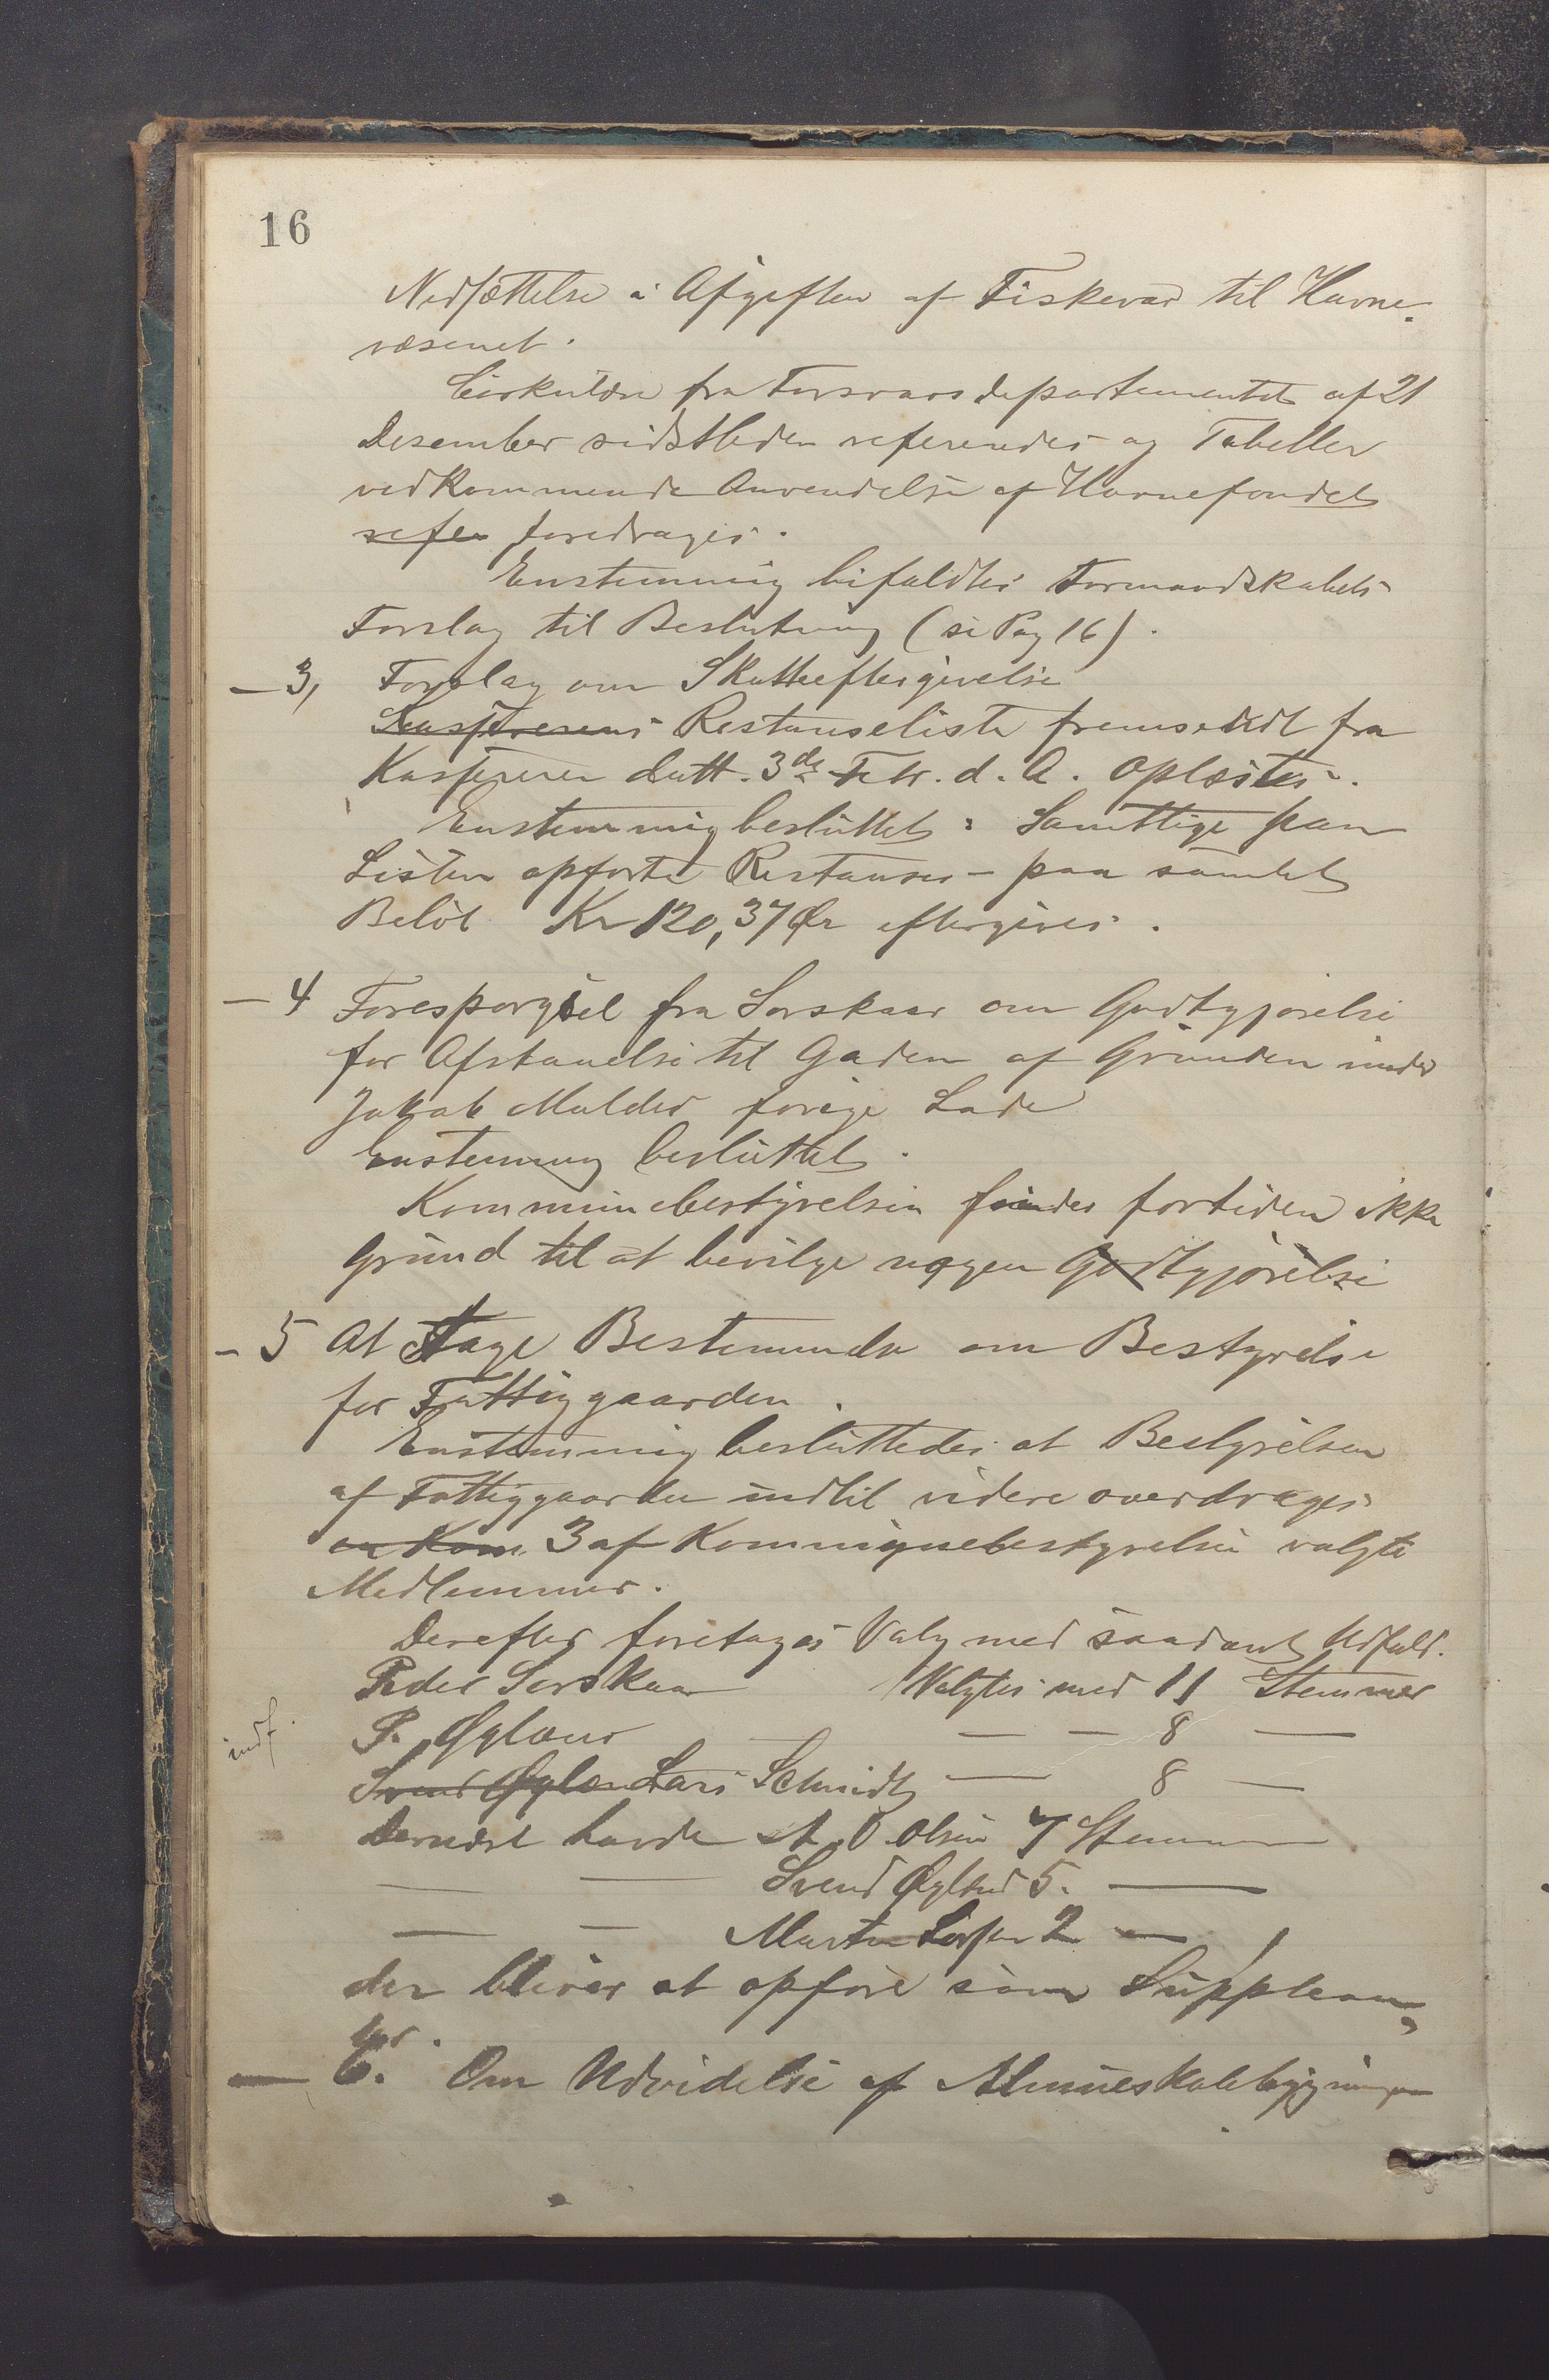 16
Nedsættelse i Afgiften af Fiskevar til Havne-
væsenet.
Cirkulære fra Forsvarsdepartementet af 21
Desember sidstleden refereredes og Tabeller
vedkommende Anvendelse af Havnefondet
refer foredrages.
Enstemmig bifaldtes Formandskabets
Forslag til Beslutning (se Pag 16).
- 3, Forslag om Skatteeftergivelse
Kassererens Restanseliste fremsendt fra
Kassereren datt. 3de Febr. d. A. oplæstes.
Enstemmig besluttet: Samttlige paa
Listen opførte Restanser - paa samlet
Beløb Kr 120,37 Ør eftergives.
- 4 Forespørgsel fra Sørskaar om Godtgjørelse
for Afstaaelse til Gaden af Grunden under
Jakob Mulder forige Lade
Enstemmig besluttet.
Kommunebestyrelsen findes fortiden ikke
Grund til at bevilge nogen Godtgjørelse
- 5 At tage Bestemmelse om Bestyrelse
for Fattiggaarden.
Enstemmig besluttedes at Bestyrelsen
af Fattiggaarden indtil videre overdrages
en Kom. 3 af Kommunebestyrelsen valgte
Medlemmer.
Derefter foretages Valg med saadant Udfald.
Peder Sørskaar Valgtes med 11 Stemmer
indf. P. Øglænd — — 8 —
Svend Øglæn Lars Schmidt — 8 —
Dernæst havde A. O. Olsen 7 Stemmer
— — Svend Øglænd 5. —
— — Martin 2 —
der bliver at opføre som Supplean-
ter.
— 6. Om Udvidelse af Almueskolebygningen